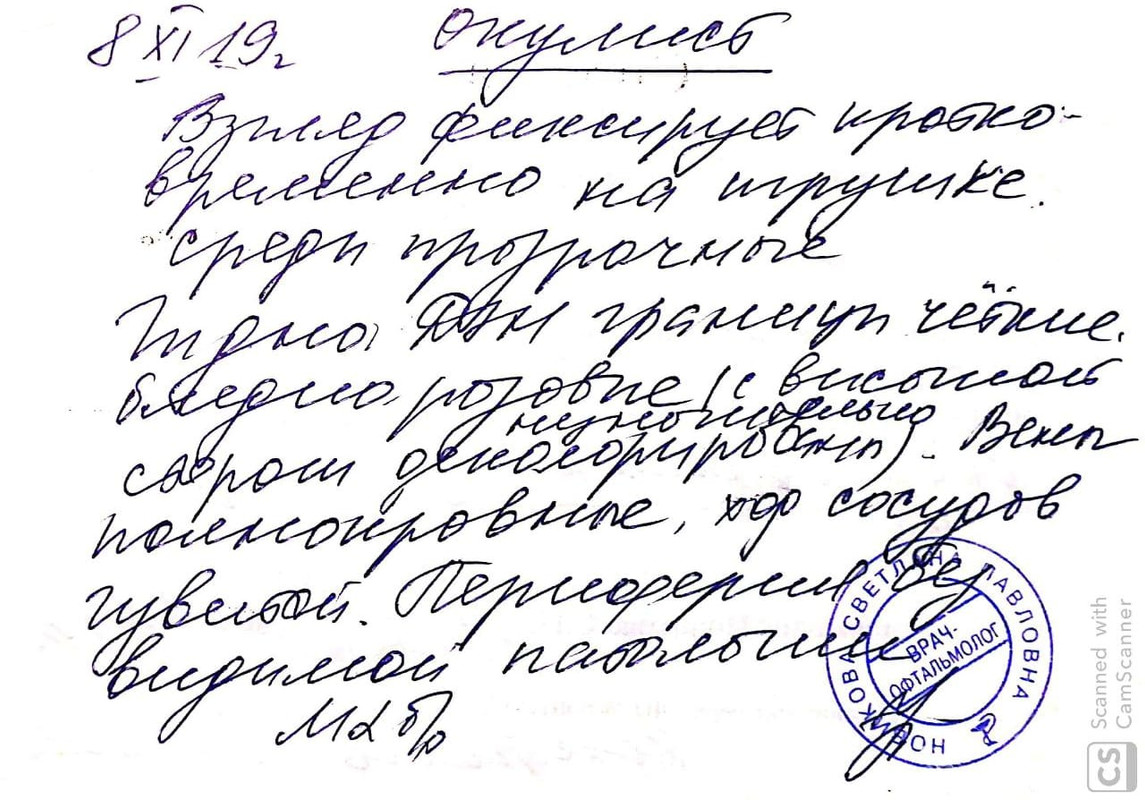 8 XI 19г
Окулист
Взгляд фиксирует кратко-
временно на игрушке.
среды прозрачные
Гл дно ДЗН границы чёткие.
бледно розовые (с височной
незначительно
стороны деколорированы). Вены
полнокровные, ход сосудов
извитой. Периферия без
видимой патологии
М2 б/о
НОВИКОВА СВЕТЛАНА ПАВЛОВНА
ВРАЧ-
ОФТАЛЬМОЛОГ
CS
Scanned with
CamScanner